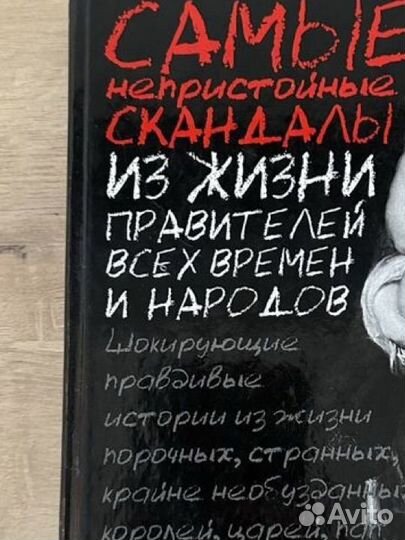 САМЫЕ
непристойные
СКАНДАЛЫ
ИЗ ЖИЗНИ
ПРАВИТЕЛЕЙ
ВСЕХ ВРЕМЕН
И НАРОДОВ
Шокирующие
правдивые
истории из жизни
порочных, странных,
крайне необузданных
королей, царей, пап
Avito